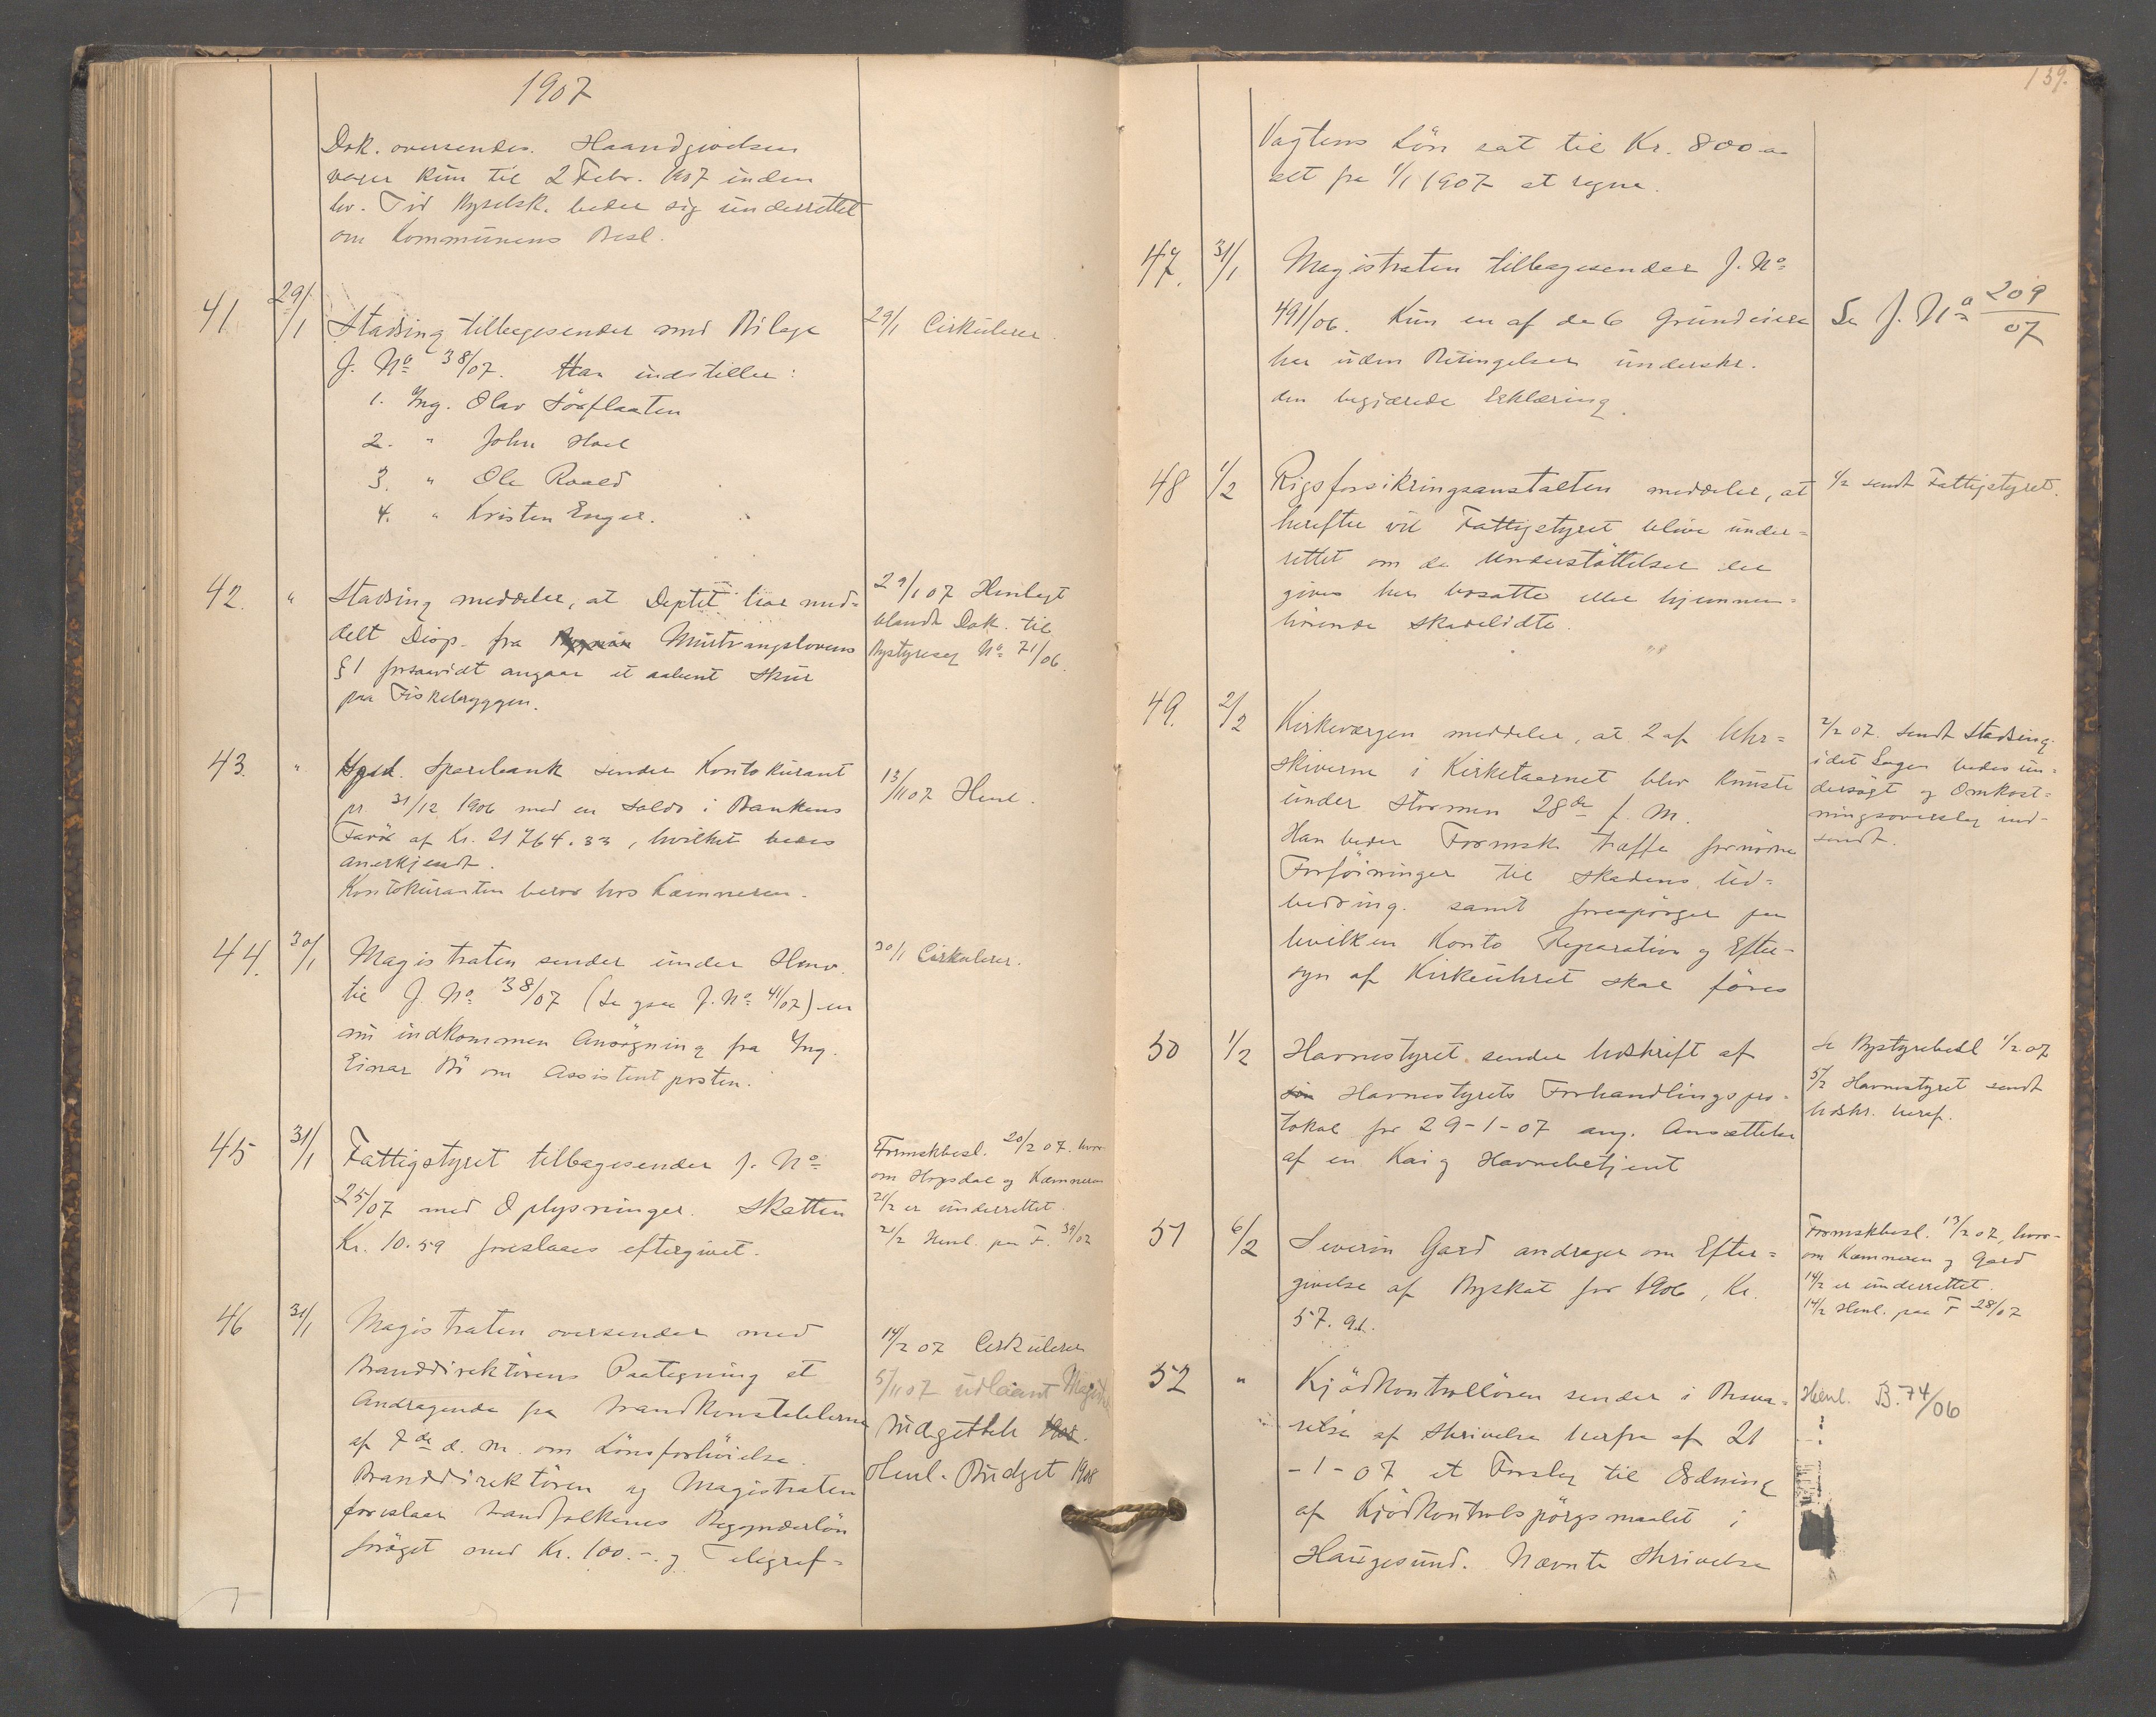 1907
Dok. oversendes. Haandgivelsen
varer kun til 2 Febr. 1907 inden
hv. Tid Byselsk. beder sig underrettet
om Kommunens Besl.
41 29/1 Stadsing tilbagesender med Bilage 29/1 Cirkulerer.
J. No 38/07. Han indstiller:
1. Ing. Olav Sörflaaten
2. " John Hoel
3. " Ole Roald
4. " Kristen Enger.
42. " Stadsing meddeler, at Deptet har med= 29/1 07 Henlagt
delt Disp. fra Murtvangslovens blandt Dok. til
§ 1 forsaavidt angaar et aabent Skur Bystyresag No 71/06.
paa Fiskebryggen.
43. " Hgsd. Sparebank sender Kontokurant 13/11 07 Henl.
pr. 31/12 1906 med en Saldo i Bankens
Favör af Kr. 21764.33, hvilket bedes
anerkjendt.
Kontokuranten beror hos Kæmneren.
44. 30/1 Magistraten sender under Henv. 30/1 Cirkulerer.
til J. No 38/07 (Se ogsaa J. No 41/07) en
nu indkommen Ansögning fra Ing.
Einar Bö om Assistentposten.
45 31/1 Fattigstyret tilbagesender J. No Formskbesl. 20/2 07. hvor-
25/07 med Oplysninger. Skatten om Hogsdal og Kæmneren
Kr. 10.59 foreslaaes eftergivet. 21/2 er underrettet.
21/2 Henl. paa F. 39/07
46 31/1 Magistraten oversender med 14/2 07 Cirkulerer
Branddirektörens Paategning et 5/11 07 udlaant Magistr.
Andragende fra Brandkonstablerne Budgettet 1908.
af 7de d. M. om Lönsforhöielse. Henl. Budget 1908
Branddirektören og Magistraten
foreslaar Brandfolkenes Begynderlön
foröget med Kr. 100.-. og Telegraf=
139.
Vagtens Lön sat til Kr. 800.-
alt fra 1/1 1907 at regne.
47. 31/1 Magistraten tilbagesender J. No
491/06. Kun en af de 6 Grundeiere Se J. No 209/07
har uden Betingelser underskr.
den begjærede Erklæring.
48 1/2 Rigsforsikringsanstalten meddeler, at 1/2 sendt Fattigstyret.
herefter vil Fattigstyret blive under=
rettet om de Understöttelser der
gives her bosatte eller hjemme=
hörende skadelidte.
49. 2/2 Kirkeværgen meddeler, at 2 af Uhr= 2/2 07. sendt Stadsing.
skiverne i Kirketaarnet blev knuste idet Sagen bedes un=
under Stormen 28de f. M. dersögt og Omkost=
Han beder Formsk. træffe fornödne ningsoverslag ind-
Forföininger til Skadens Ud= sendt.
bedring. samt forespörger paa
hvilken Konto Reparation og Efter-
syn af Kirkeuhret skal föres
50 1/2 Havnestyret sender Udskrift af Se Bystyrebesl 1/2 07
Havnestyrets Forhandlingspro- 5/2 Havnestyret sendt
tokol for 29-1-07 ang. Ansættelse Udskr. heraf.
af en Kai og Havnebetjent
51 6/2 Severin Gard andrager om Efter= Formskbesl. 13/2 07, hvor-
givelse af Byskat for 1906, Kr. om Kæmneren og Gard
57. 14/2 er underrettet.
14/2 Henl. paa F 28/07
52 " Kjödkontrollören sender i Besva= Henl. B. 74/06
relse af Skrivelse herfra af 21
-1-07 et Forslag til Ordning
af Kjödkontrolspörgsmaalet i
Haugesund. Nævnte Skrivelse